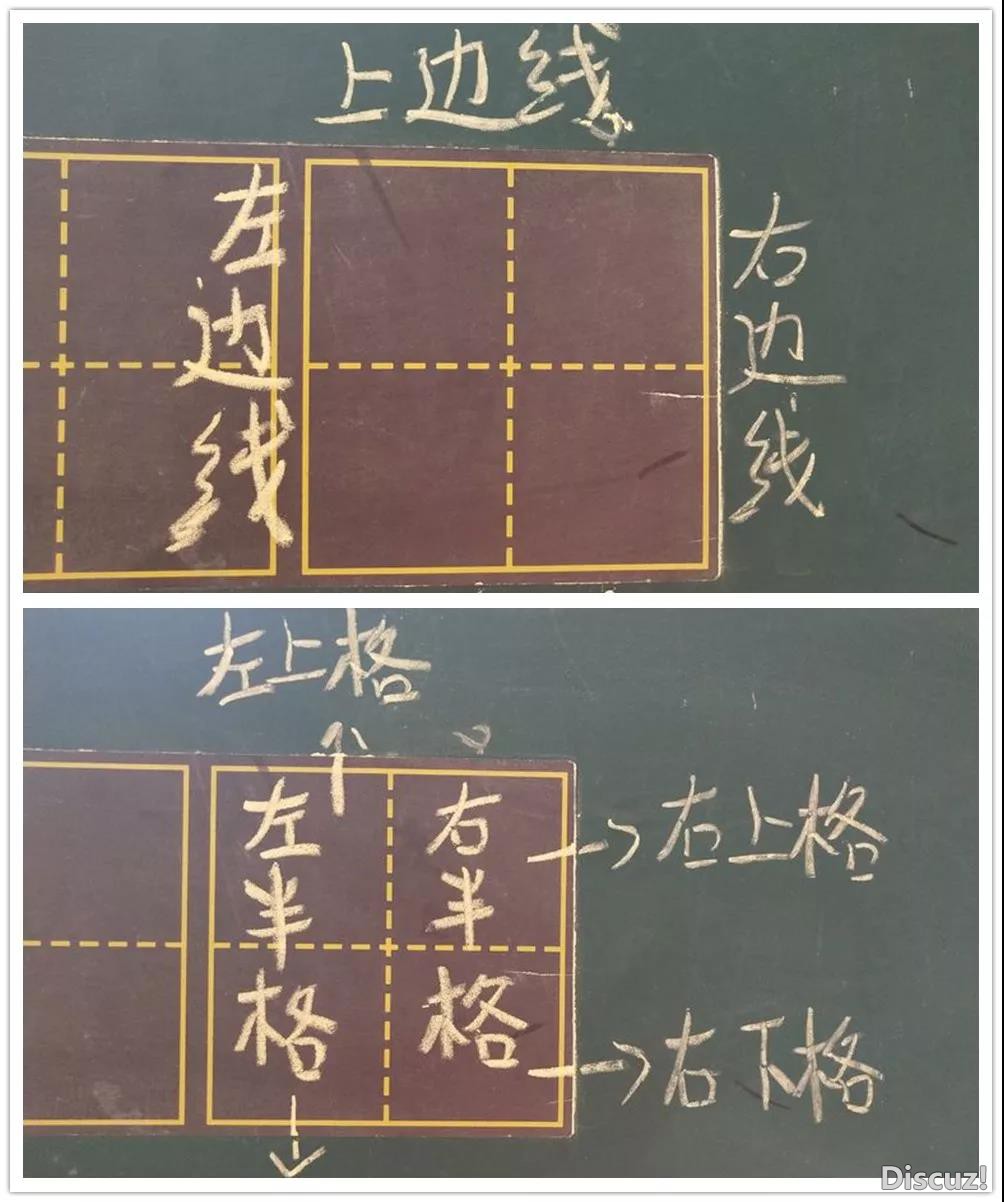 上边线
左边线
右边线
左上格
左半格
右半格
右上格
右下格
Discuz!